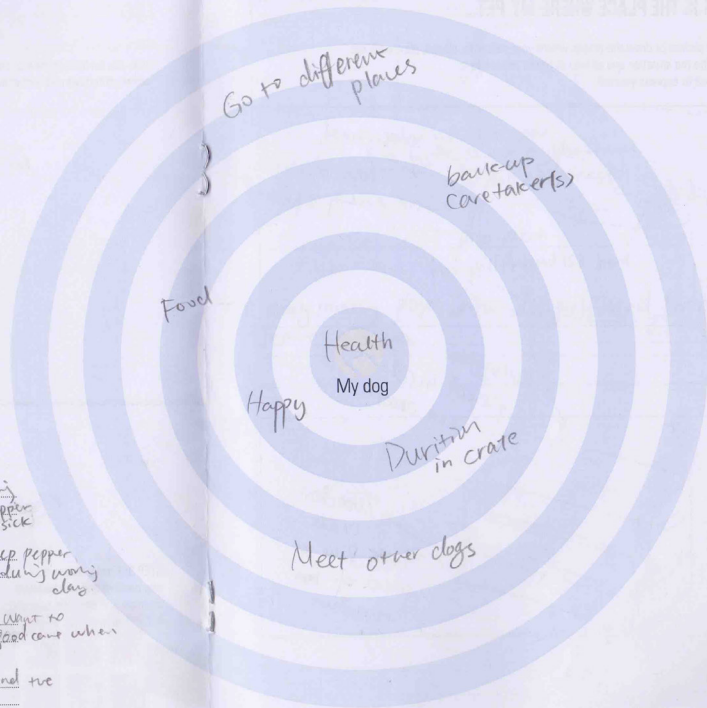 Go to different
places
back-up
caretaker(s)
Food
Health
My dog
Happy
Durition
in crate
Meet other dogs
sick
pepper
during working
day
want to
good care when